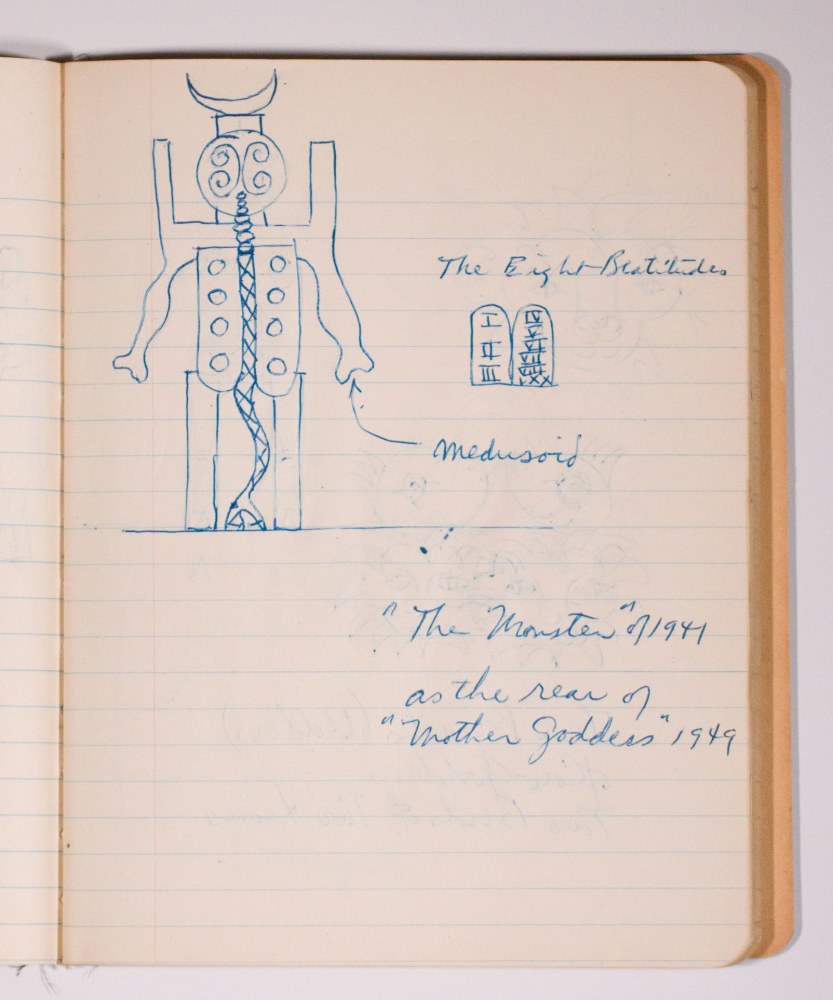 The Eight Beatitudes
medusoid
"The Monster" of 1941
as the rear of
"Mother Goddess" 1949